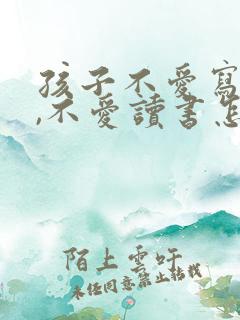 孩子不愛寫
,不愛讀書怎
陌上雲吁
未經同意禁止轉載